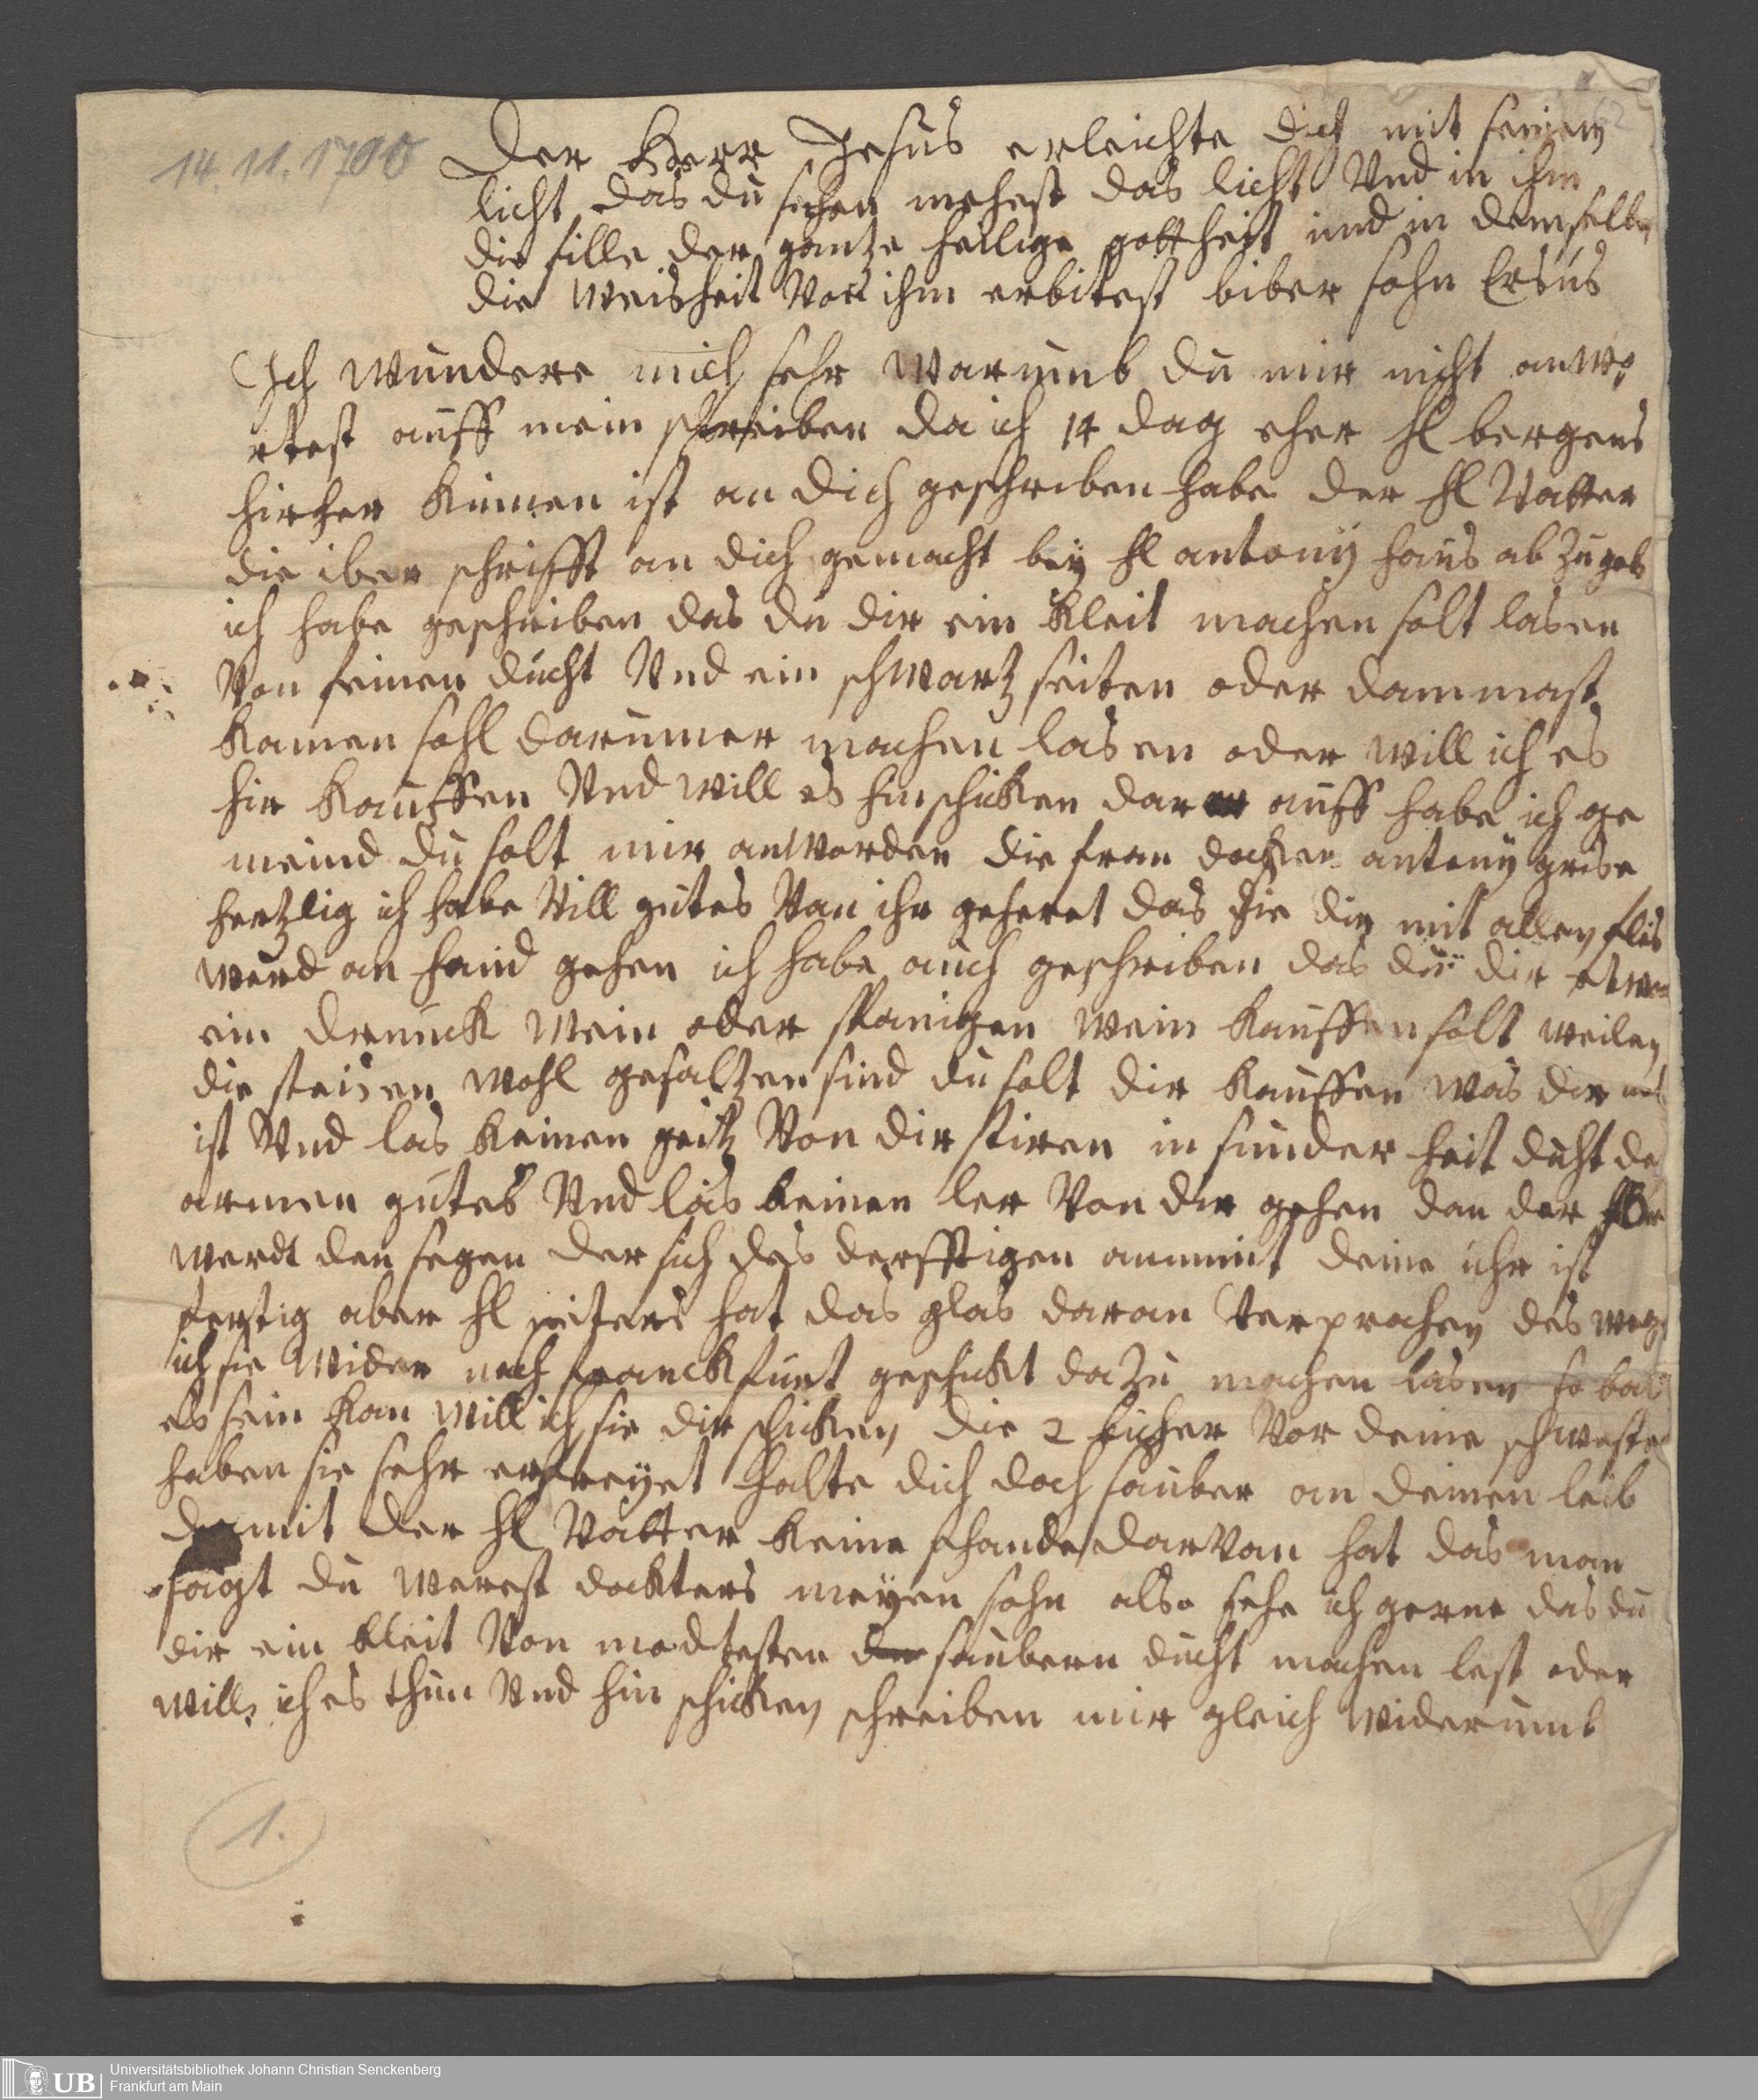 14. 11. 1700
Der Herr Jesus erleichte dich mit seinem
licht das du sehen mehest das licht Und in ihm
die fille der gantze heilige gottheit und in demselben
die Weisheit Von ihm erbitest liber sohn
Ich Wundere mich sehr Warumb du mir nicht anwo
rtest auff mein schreiben da ich 14 dag eher hl bergens
hircher kumen ist an dich geschriben habe der hl Vatter
die iber schrifft an dich gemacht bey hl antony haus ab zu geb
ich habe geschriben das du dir ein Kleit machen solt lasen
Von feinen ducht Und ein schWartz seiten oder dammast
Kamensohl darunner machen lasen oder will ich es
hir Kauffen Und Will es hin schicken dar auff habe ich ge
meind du solt mir anworden die frau docktter antony grise
hertzlig ich habe Vill gutes Van ihr geheret das sie dir mit allen fleis
werd an hand gehen ich habe auch geschriben das du dir etwa
ein drunck Wein oder spanigen Wein Kauffen solt weilen
die speisen Wohl gesaltzen sind du solt dir Kauffen Was dir
ist Und las Keinen geitz Von dir spiren in sunder heit duht de
armen gutes Und las keinen ler Von dir gehen dan der
werdt den segen der sich des derfftigen annimt deine uhr ist
fertig aber hl hat das glas daran Verprochen des weg
ich sie Wider nach franckfurt geschickt dazu machen lasen so bal
es sein Kan Will ich sie dir schicken die 2 bicher Vor deine schweste
haben sie sehr erfreyet halte dich doch sauber an deinen leib
damit der hl Vatter Keine schande darVan hat das man
sagt du Werest docktters meyen sohn also sehe ich gerne das du
dir ein Kleit Von saubern ducht machen lest oder
Will ich es thun Und hin schicken schreiben mir gleich Widerumb
1.
UB
Universitätsbibliothek Johann Christian Senckenberg
Frankfurt am Main